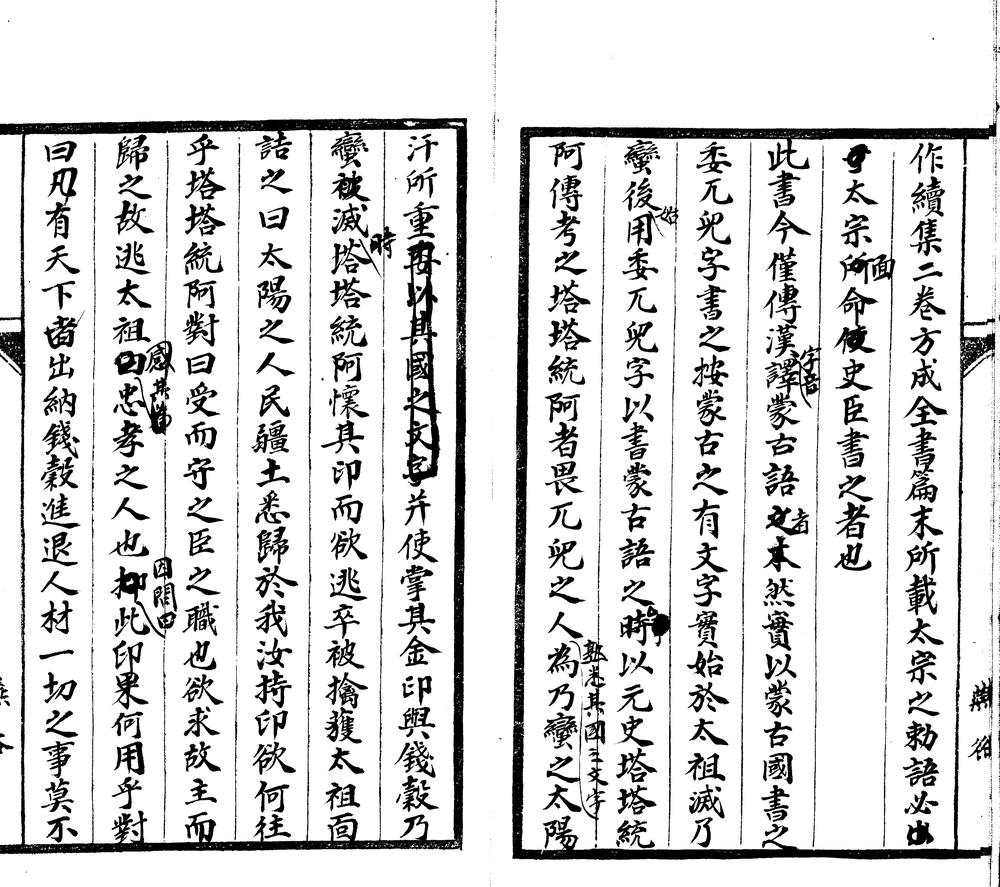 作續集二卷方成全書篇末所載太宗之勅語必出
太宗面命史臣書之者也
此書今僅傳漢字音譯蒙古語者然實以蒙古國書之
委兀兒字書之按蒙古之有文字實始於太祖滅乃
蠻後始用委兀兒字以書蒙古語之時以元史塔塔統
阿傳考之塔塔統阿者畏兀兒之人熟悉其國之文字為乃蠻之太陽
汗所重并使掌其金印與錢穀乃
蠻被滅時塔塔統阿懷其印而欲逃卒被擒獲太祖面
詰之曰太陽之人民疆土悉歸於我汝持印欲何往
乎塔塔統阿對曰受而守之臣之職也欲求故主而
歸之故逃太祖感其忠曰忠孝之人也因問曰此印果何用乎對
曰凡有天下者出納錢穀進退人材一切之事莫不